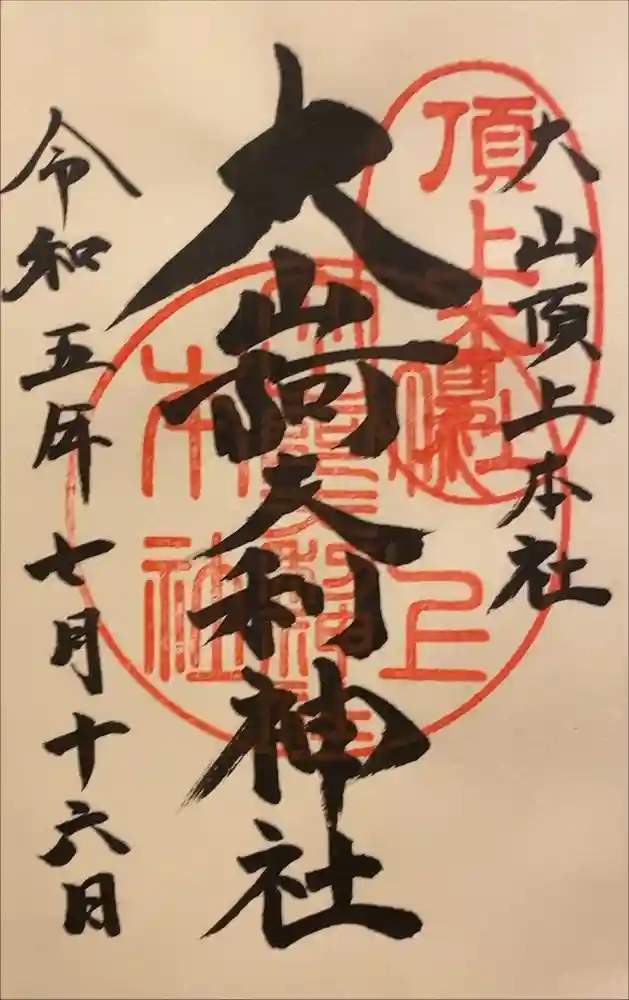 大山頂上本社
大山阿夫利神社
令和五年七月十六日
頂上本社
本社